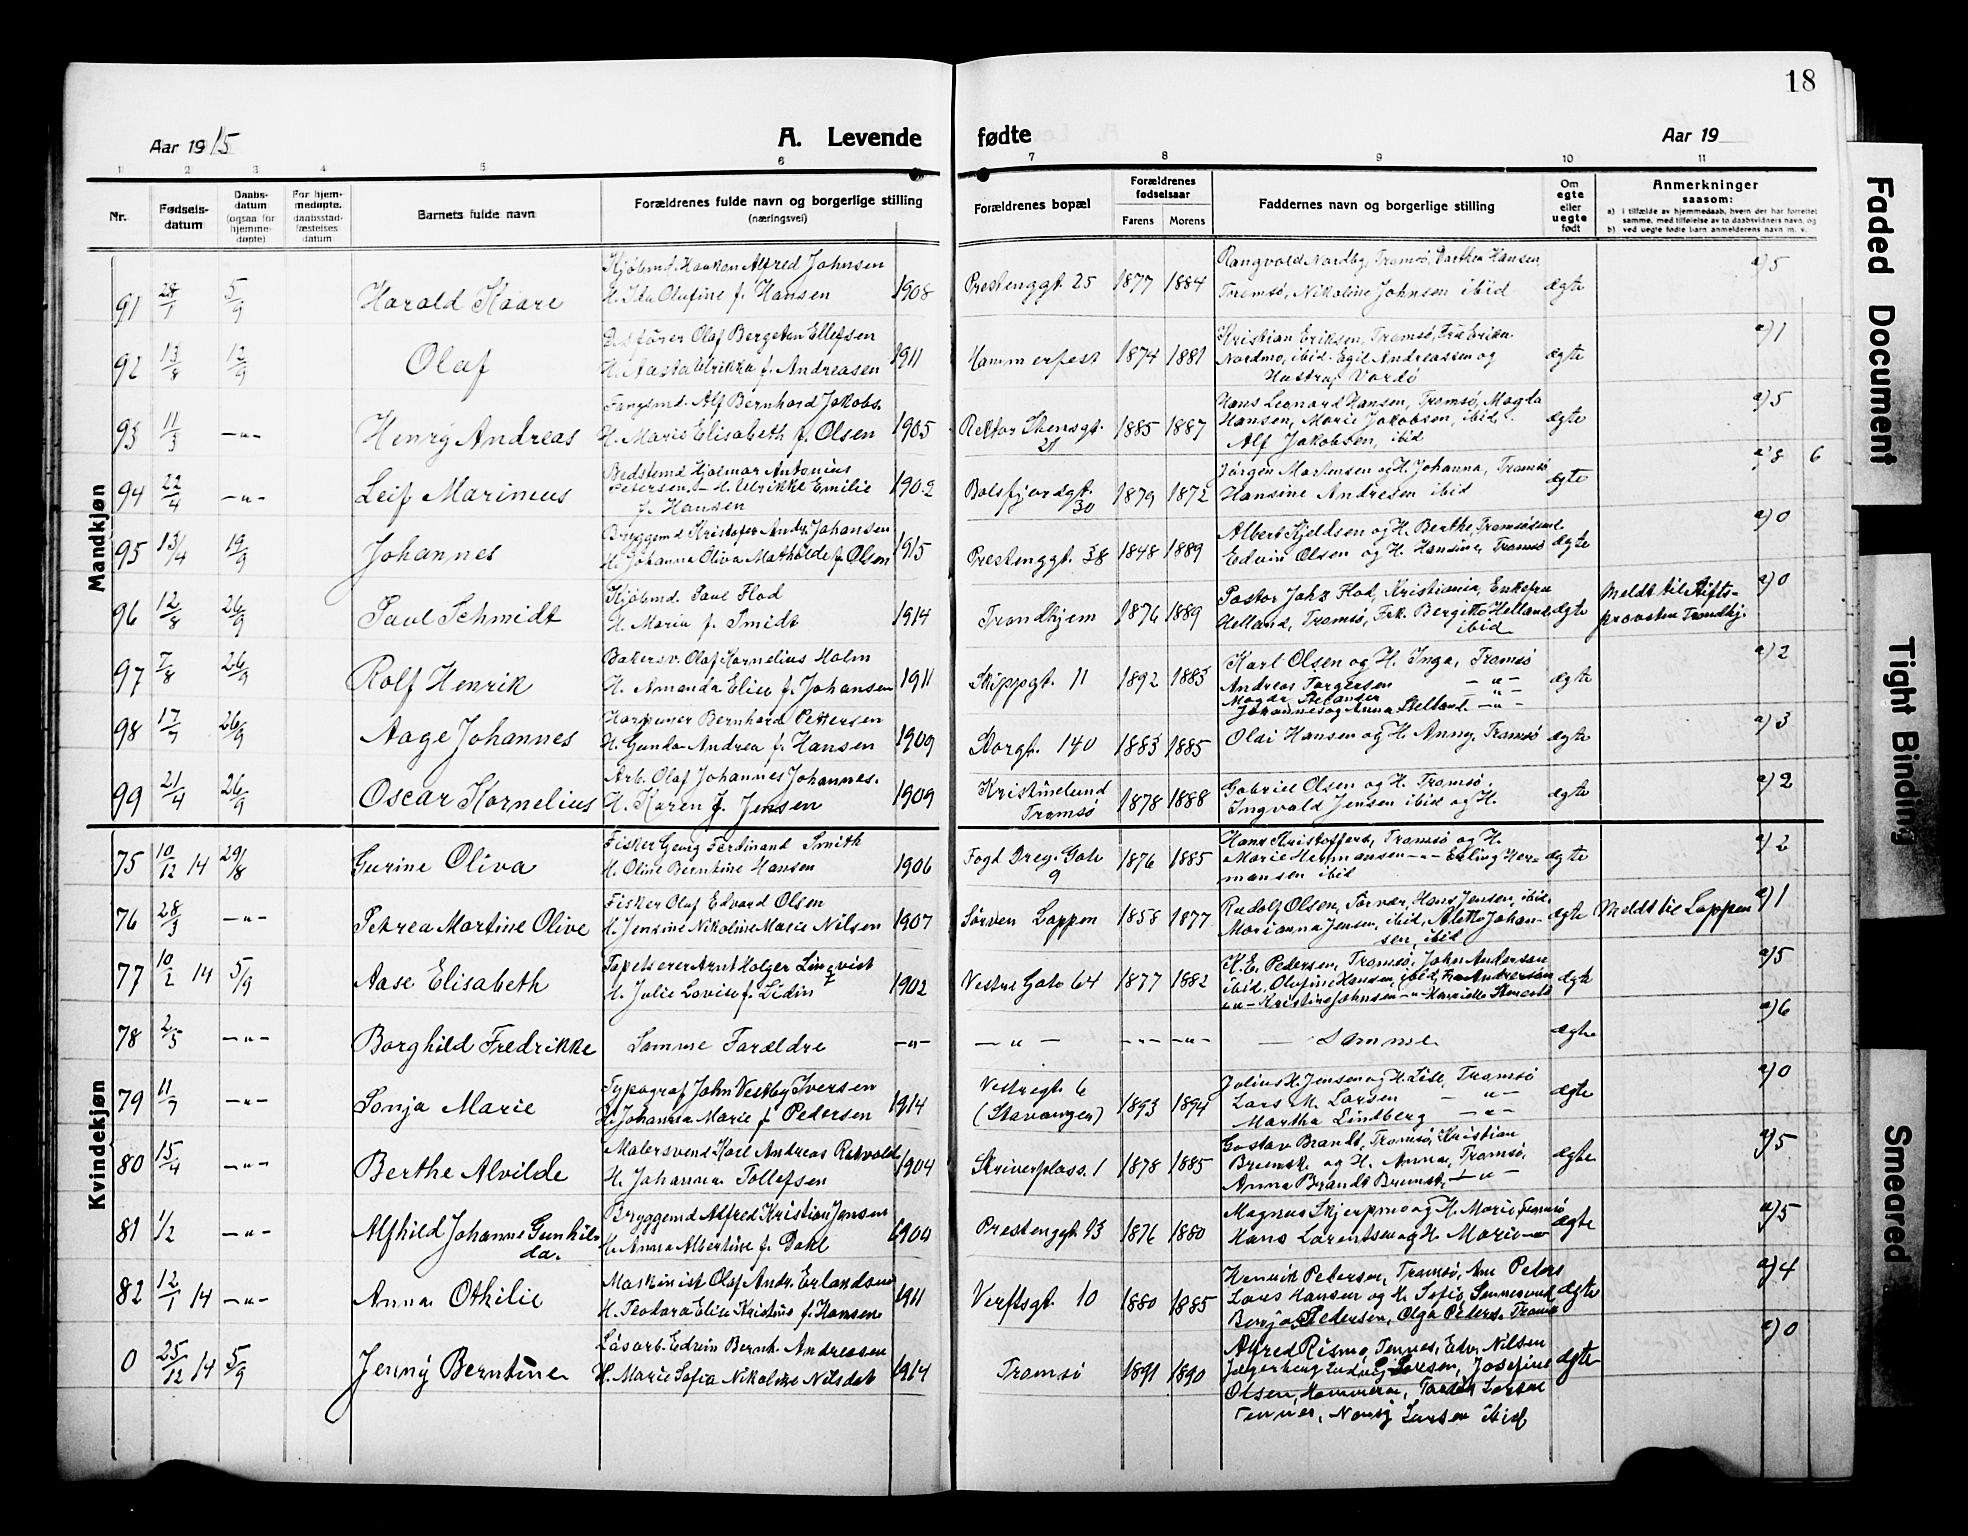 18
Aar 1915
A. Levende
fødte
Aar 19
1 2 3 4 5 6 7 8 9 10 11
Nr.
Fødsels-
datum
Daabs-
datum
(ogsaa for
hjemme-
døpte)
For hjem-
medøpte,
daabsstad-
fæstelses
datum
Barnets fulde navn
Forældrenes fulde navn og borgerlige stilling
(næringsvei)
Forældrenes bopæl
Forældrenes
fødselsaar
Farens Morens
Faddernes navn og borgerlige stilling
Om
egte
eller
uegte
født
Anmerkninger
saasom:
a) i tilfælde av hjemmedaab, hvem der har forrettet
samme, med tilføielse av to daabsvidners navn, og
b) ved uegte fødte barn anmelderens navn m. v.
Mandkjøn
Kjøbmd. Haakon Alfred Johnsen
Rangvold Nordby, Tromsø, Dorthea Hansen,
a) 5
91 5/9 Harald Kaare H. Ida Olufine f. Hansen 1908 Prestenggt. 25 1877 1884 Tromsø, Nikoline Johnsen ibid ægte
Olaf Bergeton Ellefsen
Kristian Eriksen, Tromsø,
a) 1
92 13/8 12/9 Olaf H. Aasta Ulrikka f. Andreasen 1911 Hammerfest 1874 1881 Nordmo, ibid. Egil Andreassen og ægte
Hustru, Vardø
Fangsmd. Alf Bernhard Jakobs.
Hans Leonard Hansen, Tromsø, Magda
a) 5
93 11/3 -"- Henrÿ Andreas H. Marie Elisabeth f. Olsen 1905 Rektor Stensgt. 1885 1887 Hansen, Marie Jakobsen, ibid, ægte
21 Alf Jakobsen, ibid
Hjalmar Antonius
Jørgen Mortensen og H. Johanna, Tromsø
a) 8 6
94 22/4 -"- Leif Marinius Petersen - H. Ulrikke Emilie 1902 Balsfjordgt. 1879 1872 Hansine Andresen ibid ægte
f. Hansen 30
Bryggemd Kristofer Andr. Johansen
Albert Kjeldsen og H. Berthe, Tromsøsund
a) 0
95 13/4 19/9 Johannes H. Johanna Oliva Mathilde f. Olsen 1915 Prestenggt. 38 1848 1889 Edvin Olsen og H. Hansine, Tromsø ægte
Kjøbmd. Paul Flod
Pastor Flod, Kristiania, Enkefru
Meldt til Stifts-
a) 0
96 12/8 26/9 Paul Schmidt H. Maria f. Smidt 1914 Trondhjem 1876 1889 Helland, Tromsø, Frk. Bergitte Helland ægte provsten Trondhj.
ibid
Bakersv. Olaf Kornelius Holm
Karl Olsen og H. Inga, Tromsø
a) 2
97 7/8 26/9 Rolf Henrik H. Amanda Elise f. Johansen 1911 Skippgt. 11 1892 1883 Andreas Torgersen -"- ægte
-"-
Johannes og Anna -"-
Harpuner Bernhard Pettersen
a) 3
98 17/7 26/9 Aage Johannes H. Gunda Andrea f. Hansen 1909 Storgt. 140 1883 1885 Olai Hansen og H. Anny, Tromsø ægte
Arb. Olaf Johannes Johannes.
Gabriel Olsen og H. Tromsø,
a) 2
99 21/4 26/9 Oscar Kornelius H. Karen J. Jensen 1909 Kristinelund 1878 1888 Ingvald Jensen ibid og H. ægte
Tromsø
Kvindekjøn
Fisker Georg Ferdinand Smith
Hans Kristoffers, Tromsø og H.
a) 2
75 10/12 14 29/8 Gurine Oliva H. Oline Berntine Hansen 1906 Fogd Drey. Gate 1876 1885 Marie Hermansen -"- Erling Her- ægte
9 mansen ibid
Fisker Olaf Edvard Olsen
Rudolf Olsen, Sørvær, Hans Jensen, ibid,
a) 1
76 28/3 -"- Petrea Martine Olive H. Jensine Nikoline Marie Nilsen 1907 Sørven Loppen 1858 1877 Marianna Jensen, ibid, Aletta Johan- ægte Meldt til Loppen
sen, ibid
Tapetserer Arnt Holger Linqvist
K. E. Pedersen, Tromsø, John Anderson
a) 5
77 10/2 14 5/9 Aase Elisabeth H. Julie Lovise f. Lidin 1902 Vestre Gate 64 1877 1882 ibid, Olufine Hansen, ibid, Fru Anderson ægte
-"- Kristine Johnsen -"- Henriette
a) 6
78 2/5 -"- Borghild Fredrikke Samme Forældre -"- -"- -"- -"- Samme ægte
Typograf John Vestby Iversen
Julius H. Jensen og H. Lise, Tromsø
a) 0
79 11/7 -"- Sonja Marie H. Johanna Marie f. Pedersen 1914 Vestregt. 6 1893 1894 Lars M. Larsen -"- ægte
(Stavanger) Martha Lindberg -"-
Malersvend Karl Andreas
Gustav Brandt, Tromsø, Kristian
a) 5
80 15/4 -"- Berthe Alvilde H. Johanna Tollefsen 1904 Skriverplass. 1 1878 1885 og H. Anna, Tromsø, ægte
Anna Brandt -"-
Bryggemd Alfred Kristian Jensen
Magnus Skjerpmo og H. Marie, Tromsø
a) 5
81 1/2 -"- Alfhild Johanne Gunhil- H. Anna Albertine f. Dahl 1900 Prestenggt. 93 1876 1880 Hans Larentsen og H. Marie -"- ægte
da.
Maskinist Olaf Andr. Erlandsen
Henrik Petersen, Tromsø, Peters
a) 4
82 12/1 14 -"- Anna Othilie H. Teodora Elise Kristine f. Hansen 1911 Verftsgt. 10 1880 1885 Lars Hansen og H. Sofie, ægte
Pedersen, Olga Peders. Tromsø
Løsarb. Edvin Bernh. Andreasen
Alfred Rismo, Tennes, Edv. Nilsen
a) 0
0 25/12 14 5/9 Jennÿ Berntine H. Marie Sofia Nikoline Nilsdat 1914 Tromsø 1891 1890 Ludvig Larsen, Josefine ægte
Olsen, Larsen
Tennes, Larsen ibid
Faded Document
Tight Binding
Smeared